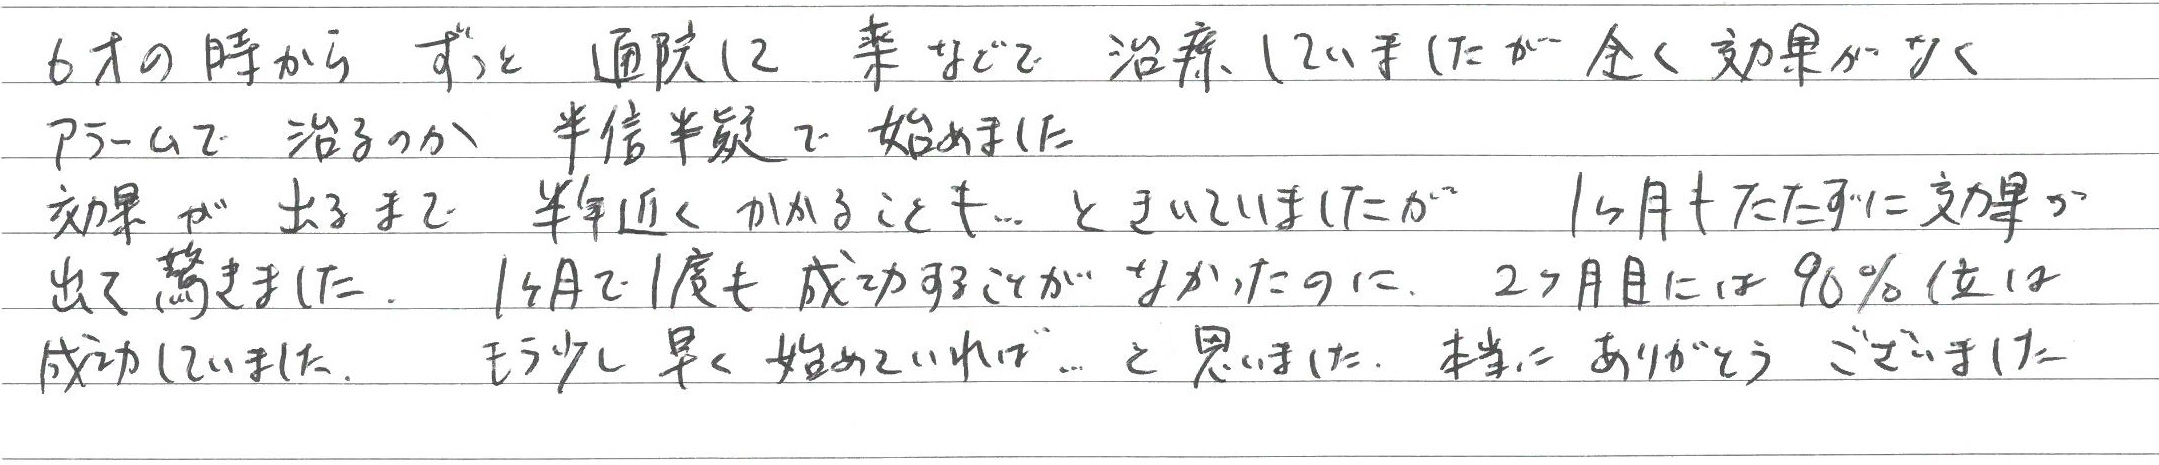 6才の時から ずっと 通院して 薬などで 治療していましたが 全く効果がなく
アラームで 治るのか 半信半疑で 始めました
効果が 出るまで 半年近く かかることも… ときいていましたが 1ヶ月もたたずに効果が
出て驚きました. 1ヶ月で1度も成功することがなかったのに. 2ヶ月目には90%位は
成功していました. もう少し早く始めていれば… と思いました. 本当に ありがとう ございました